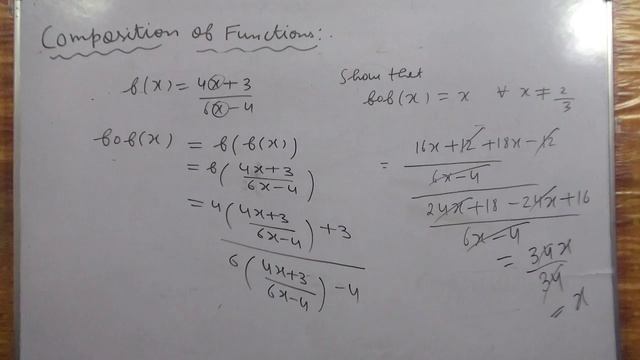 Composition of Functions:.
f(x) = (4x+3)/(6x-4)
Show that
fof(x) = x ∀ x ≠ 2/3
fof(x) = f(f(x))
= f((4x+3)/(6x-4))
= (4((4x+3)/(6x-4)) + 3)/(6((4x+3)/(6x-4)) - 4)
= ((16x+12+18x-12)/(6x-4))/((24x+18-24x+16)/(6x-4))
= 34x/34
= x